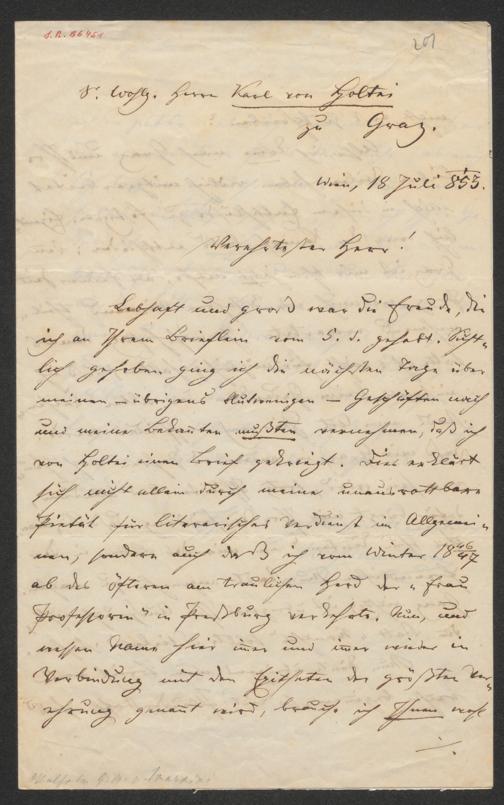 J.N. 66451
201
Sr. Wohlg. Herrn Karl von Holtei
zu Graz.
Wien, 18 Juli 855.
Verehrtester Herr!
Lebhaft und groß war die Freude, die
ich an Ihrem Brieflein vom 5. d. gehabt. Sicht-
lich gehoben ging ich die nächsten Tage über
meinen – übrigens – Geschäften nach
und meine Bekannten mußten vernehmen, daß ich
von Holtei einen Brief gekriegt. Dies erklärt
sich nicht allein durch meine unausrottbare
Pietät für literarisches Verdienst im Allgemei-
nen, sondern auch daß ich vom Winter 1846/47
ab des öfteren am traulichen Herd der „Frau
Professorin" in Preßburg verkehrte. Nun, und
wessen Name hier imer und imer wieder in
Verbindung mit den Epitheten der größten Ver-
ehrung genannt wird, brauche ich Ihnen wohl
./.